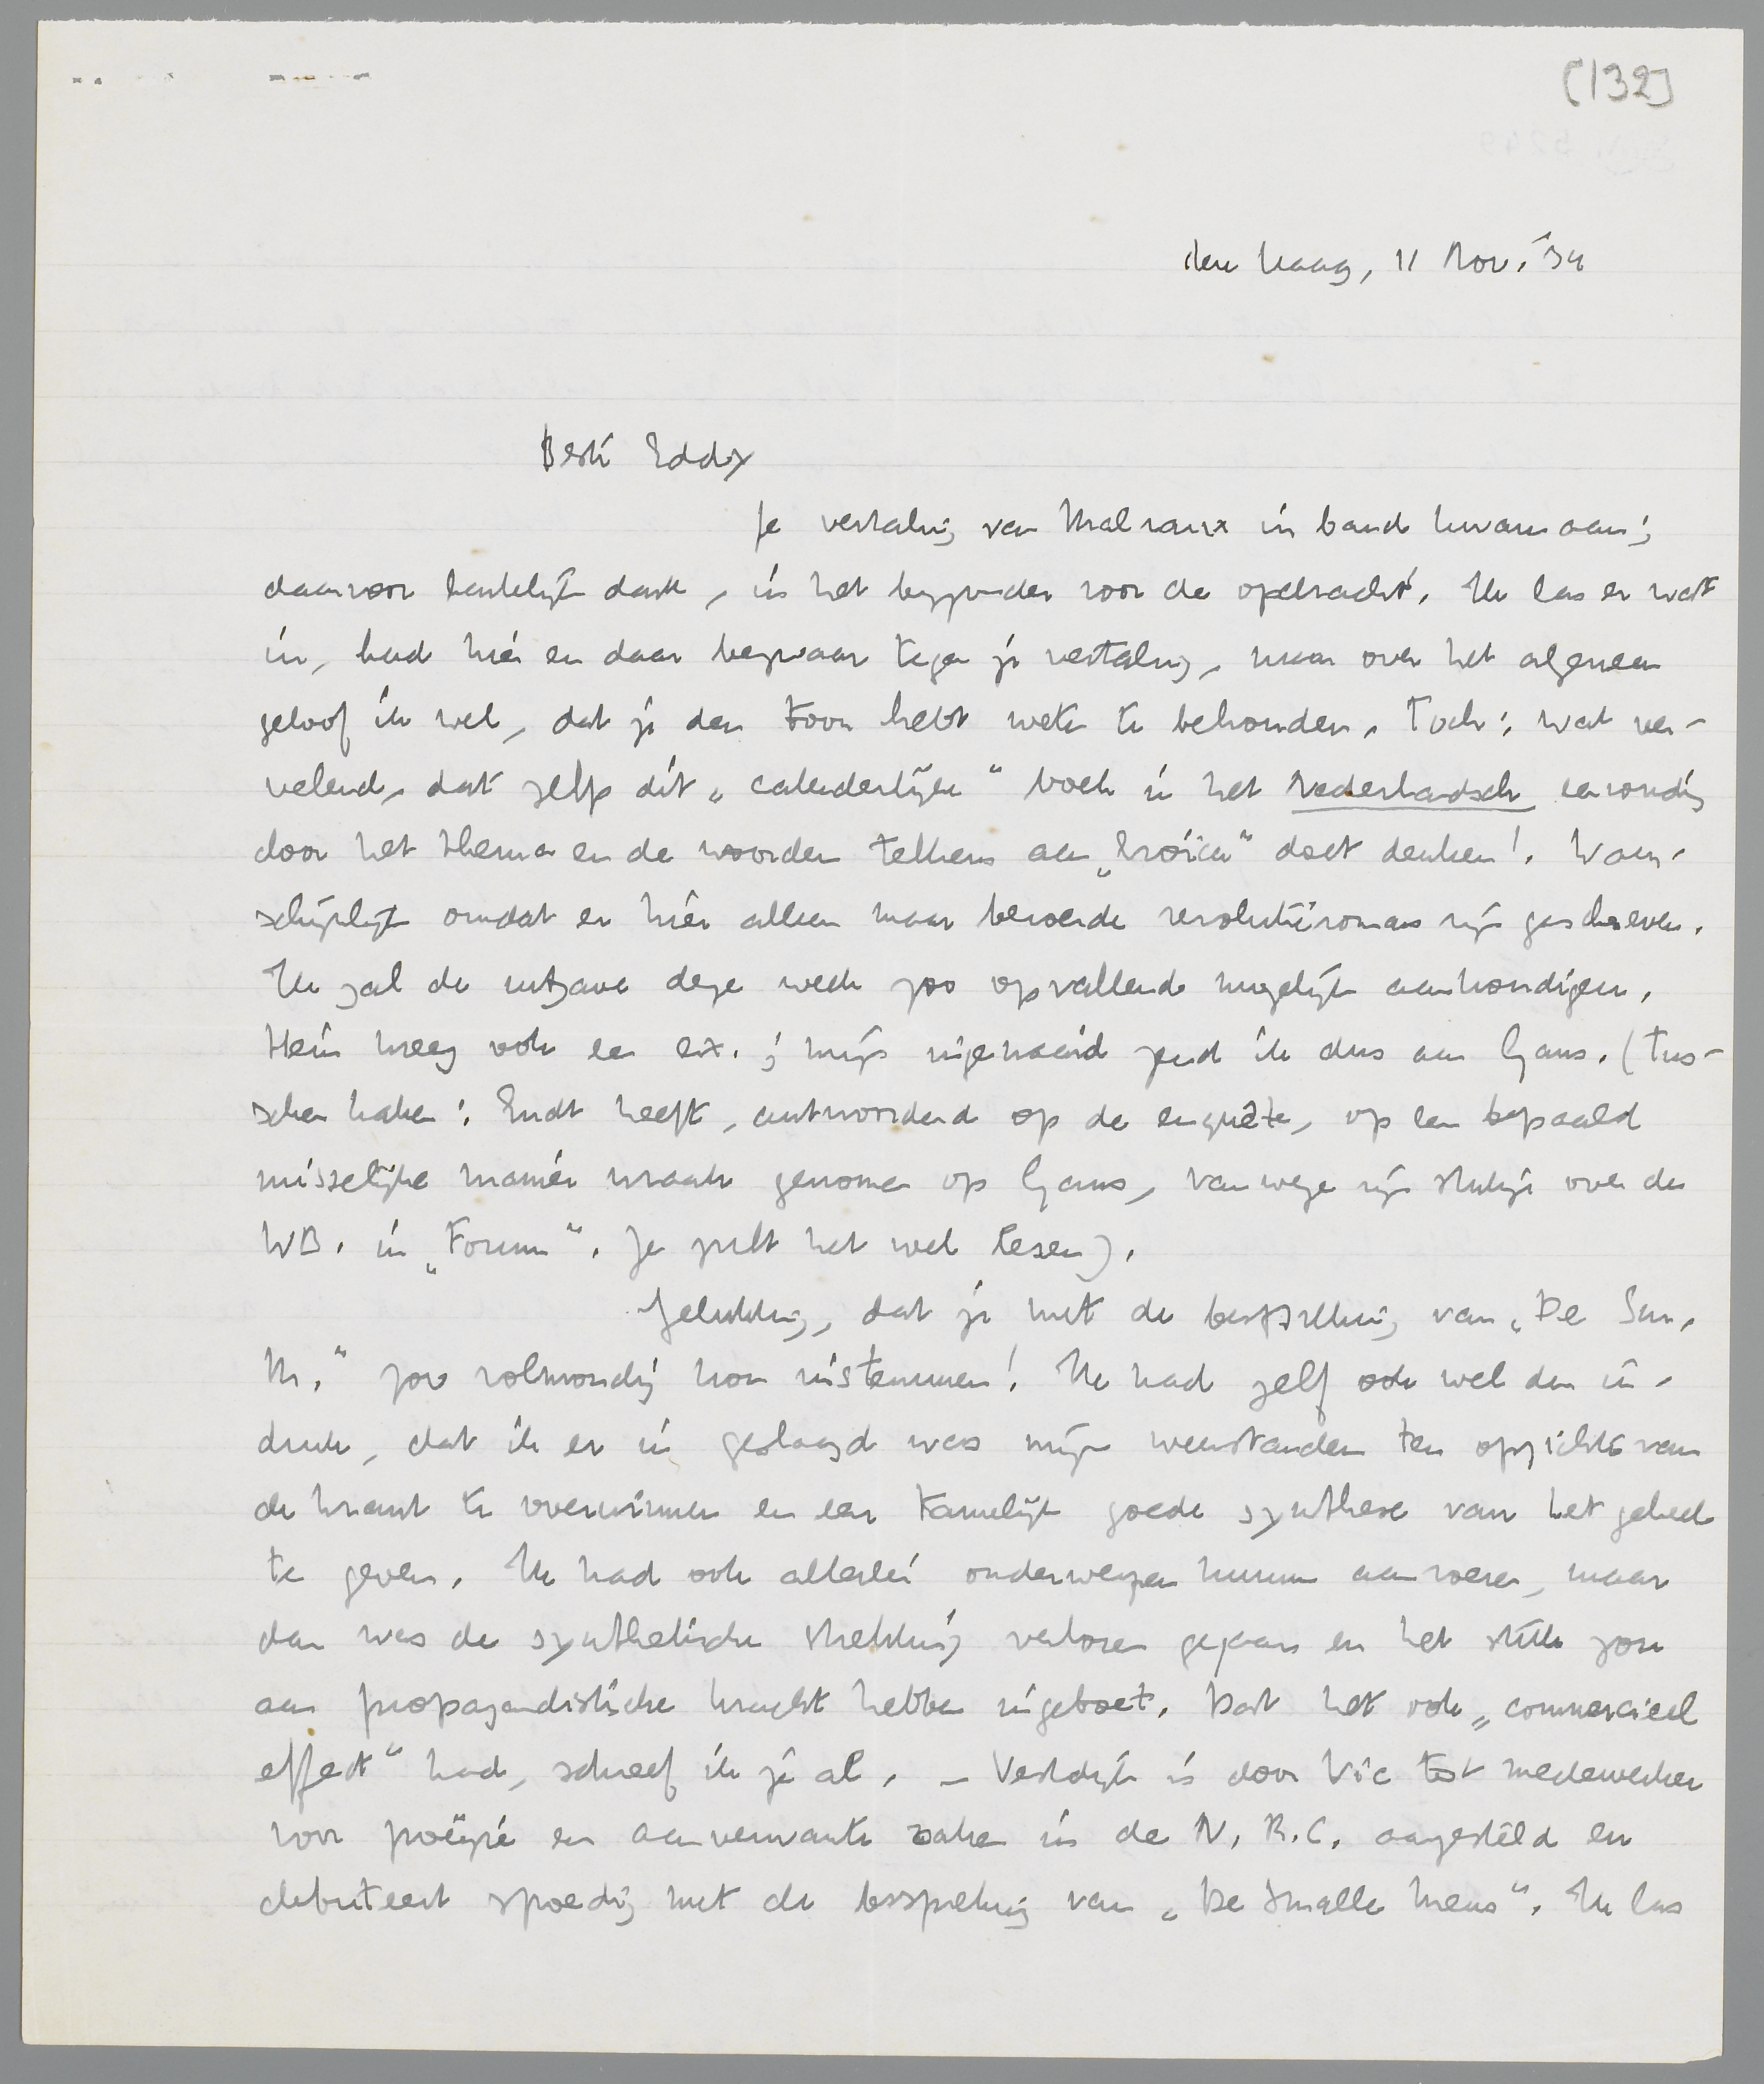 [132]
den Haag, 11 Nov. '34
Beste Eddy
Je vertaling van Malraux in band kwam aan;
daarvoor hartelijk dank, in het byzonder voor de opdracht. Ik las er wat
in, had hier en daar bezwaar tegen je vertaling, maar over het algemeen
geloof ik wel, dat je den toon hebt weten te behouden. Toch: wat ver-
velend, dat zelfs dit „cataderlijke" boek in het Nederlandsch eenvoudig
door het thema en de woorden telkens aan „Eroïca" doet denken! Waar-
schijnlijk omdat er hier alleen maar beroerde revolutieromans zijn geschreven.
Ik zal de uitgave deze week zoo opvallend mogelijk aankondigen.
Hein kreeg ook een ex.; mijn ingenaaid zend ik dus aan Gans. (Tus-
schen haken: Endt heeft, antwoordend op de enquête, op een bepaald
misselijke manier wraak genomen op Gans, vanwege zijn stukje over de
WB. in „Forum". Je zult het wel lezen).
Gelukkig, dat je met de bespreking van „De Sm.
M." zoo volmondig kon instemmen! Ik had zelf ook wel den in-
druk, dat ik er in geslaagd was mijn weerstanden ten opzichte van
de krant te overwinnen en een tamelijk goede synthese van het geheel
te geven. Ik had ook allerlei onderwerpen kunnen aanroeren, maar
dan was de synthetische strekking verloren gegaan en het stuk zou
aan propagandistische kracht hebben ingeboet. Dat het ook „commercieel
effect" had, schreef ik je al. – Vestdijk is door Vic tot medewerker
voor poëzie en aanverwante zaken in de N.R.C. aangesteld en
debuteert spoedig met de bespreking van „De Smalle Mens". Ik las